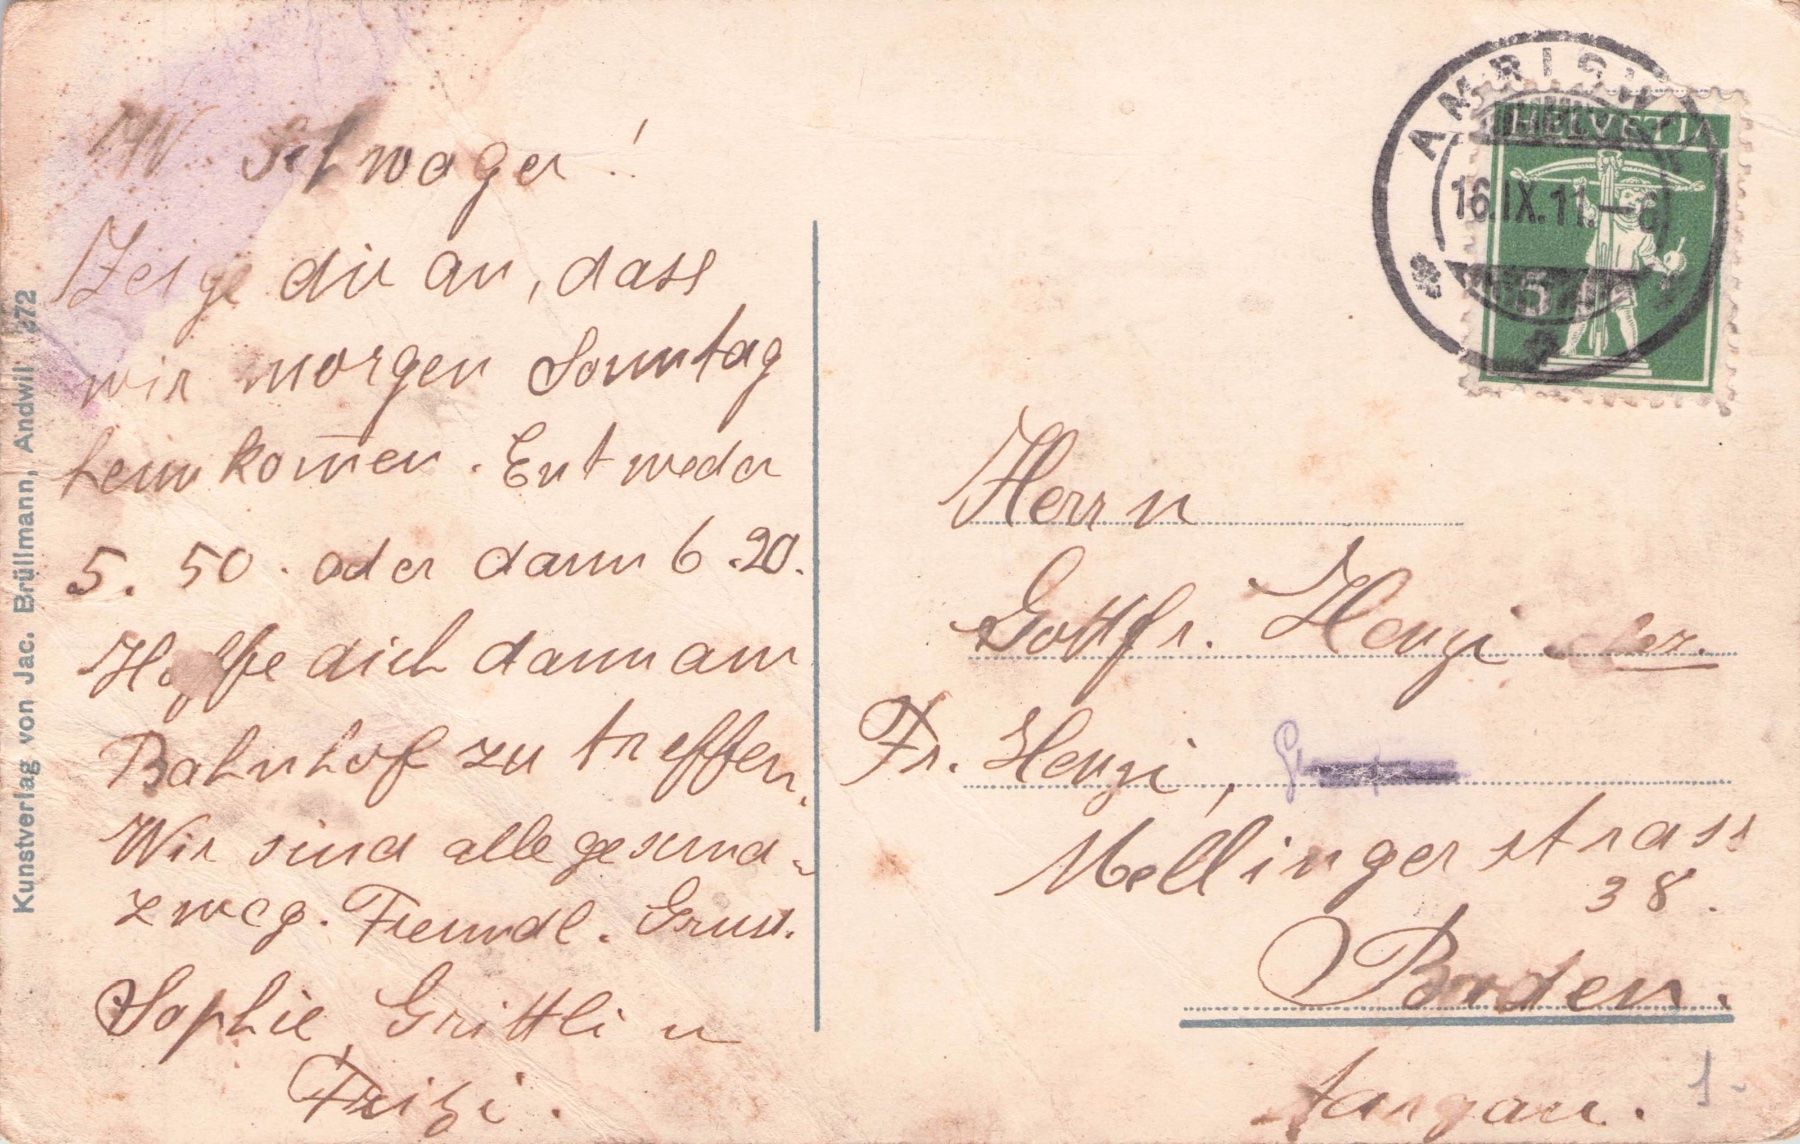 Schwager!
Zeige dir an, dass
wir morgen Sonntag
heim kom̄en. Entweder
5.50. oder dann 6.20.
Hoffe dich dann am
Bahnhof zu treffen.
Wir sind alle gesund
zweg. Freundl. Gruss.
Sophie, Grittli u
Frizi.
Kunstverlag von Jac. Brüllmann, Andwil. 272
AMRISWIL
16.IX.11.–6
HELVETIA
5
Herrn
Gottfr. Henzi
Fr. Henzi,
Mellingerstrass
38.
Baden.
Aargau.
1-